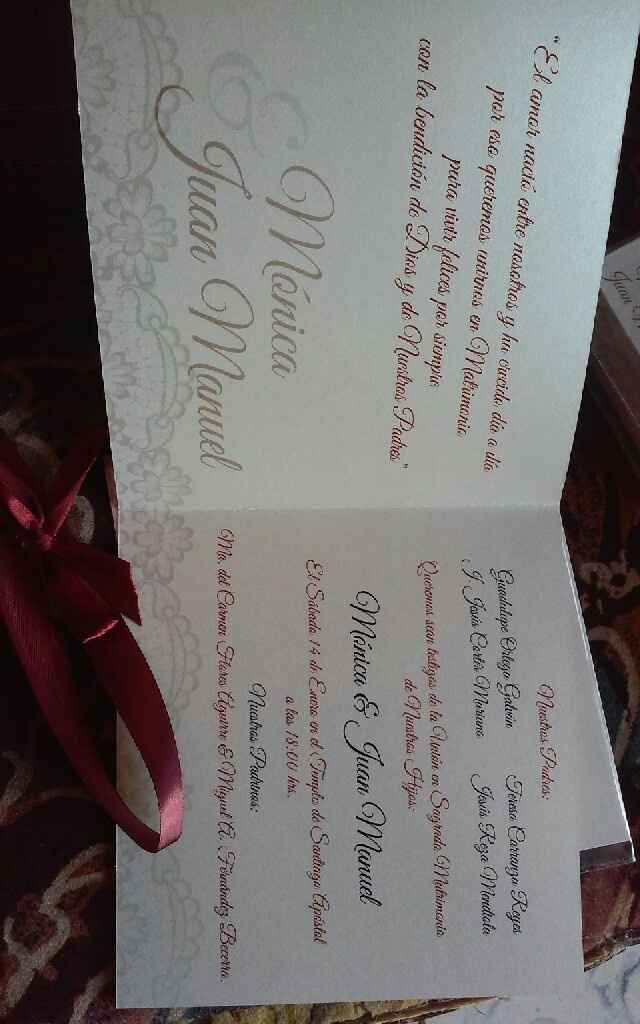 "El amor nació entre nosotros y ha crecido día a día
por eso queremos unirnos en Matrimonio
para vivir felices por siempre
con la bendición de Dios y de Nuestros Padres"
Mónica
&
Juan Manuel
Nuestros Padres:
Guadalupe Ortega Galván Teresa Carranza Reyes
J. Jesús Cortés Mariano Jesús Raza Mendiola
Queremos sean testigos de la Unión en Sagrado Matrimonio
de Nuestros Hijos:
Mónica & Juan Manuel
El Sábado 14 de Enero en el Templo de Santiago Apóstol
a las 18:00 hrs.
Nuestros Padrinos:
Ma. del Carmen Flores Aguirre & Miguel A. Fernández Becerra.
Juan M